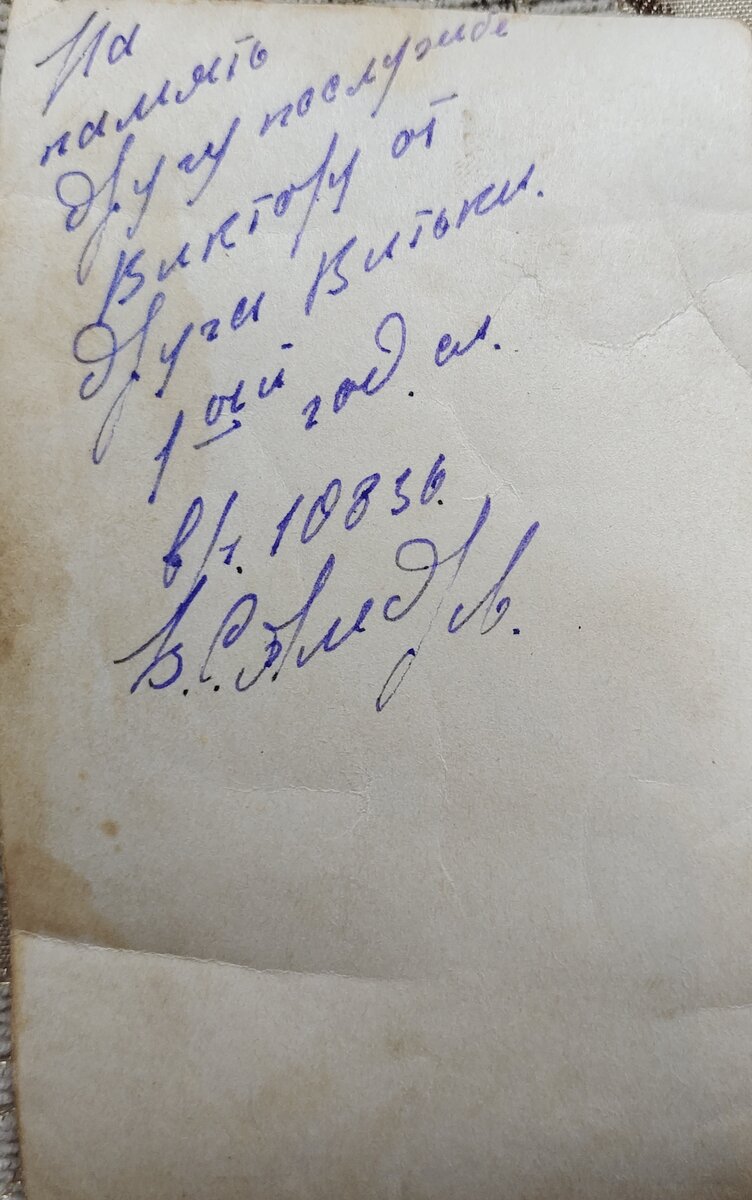 На
память
другу по службе
Виктору от
друга Витьки.
1ой год. сл.
в/ч. 10836.
В.